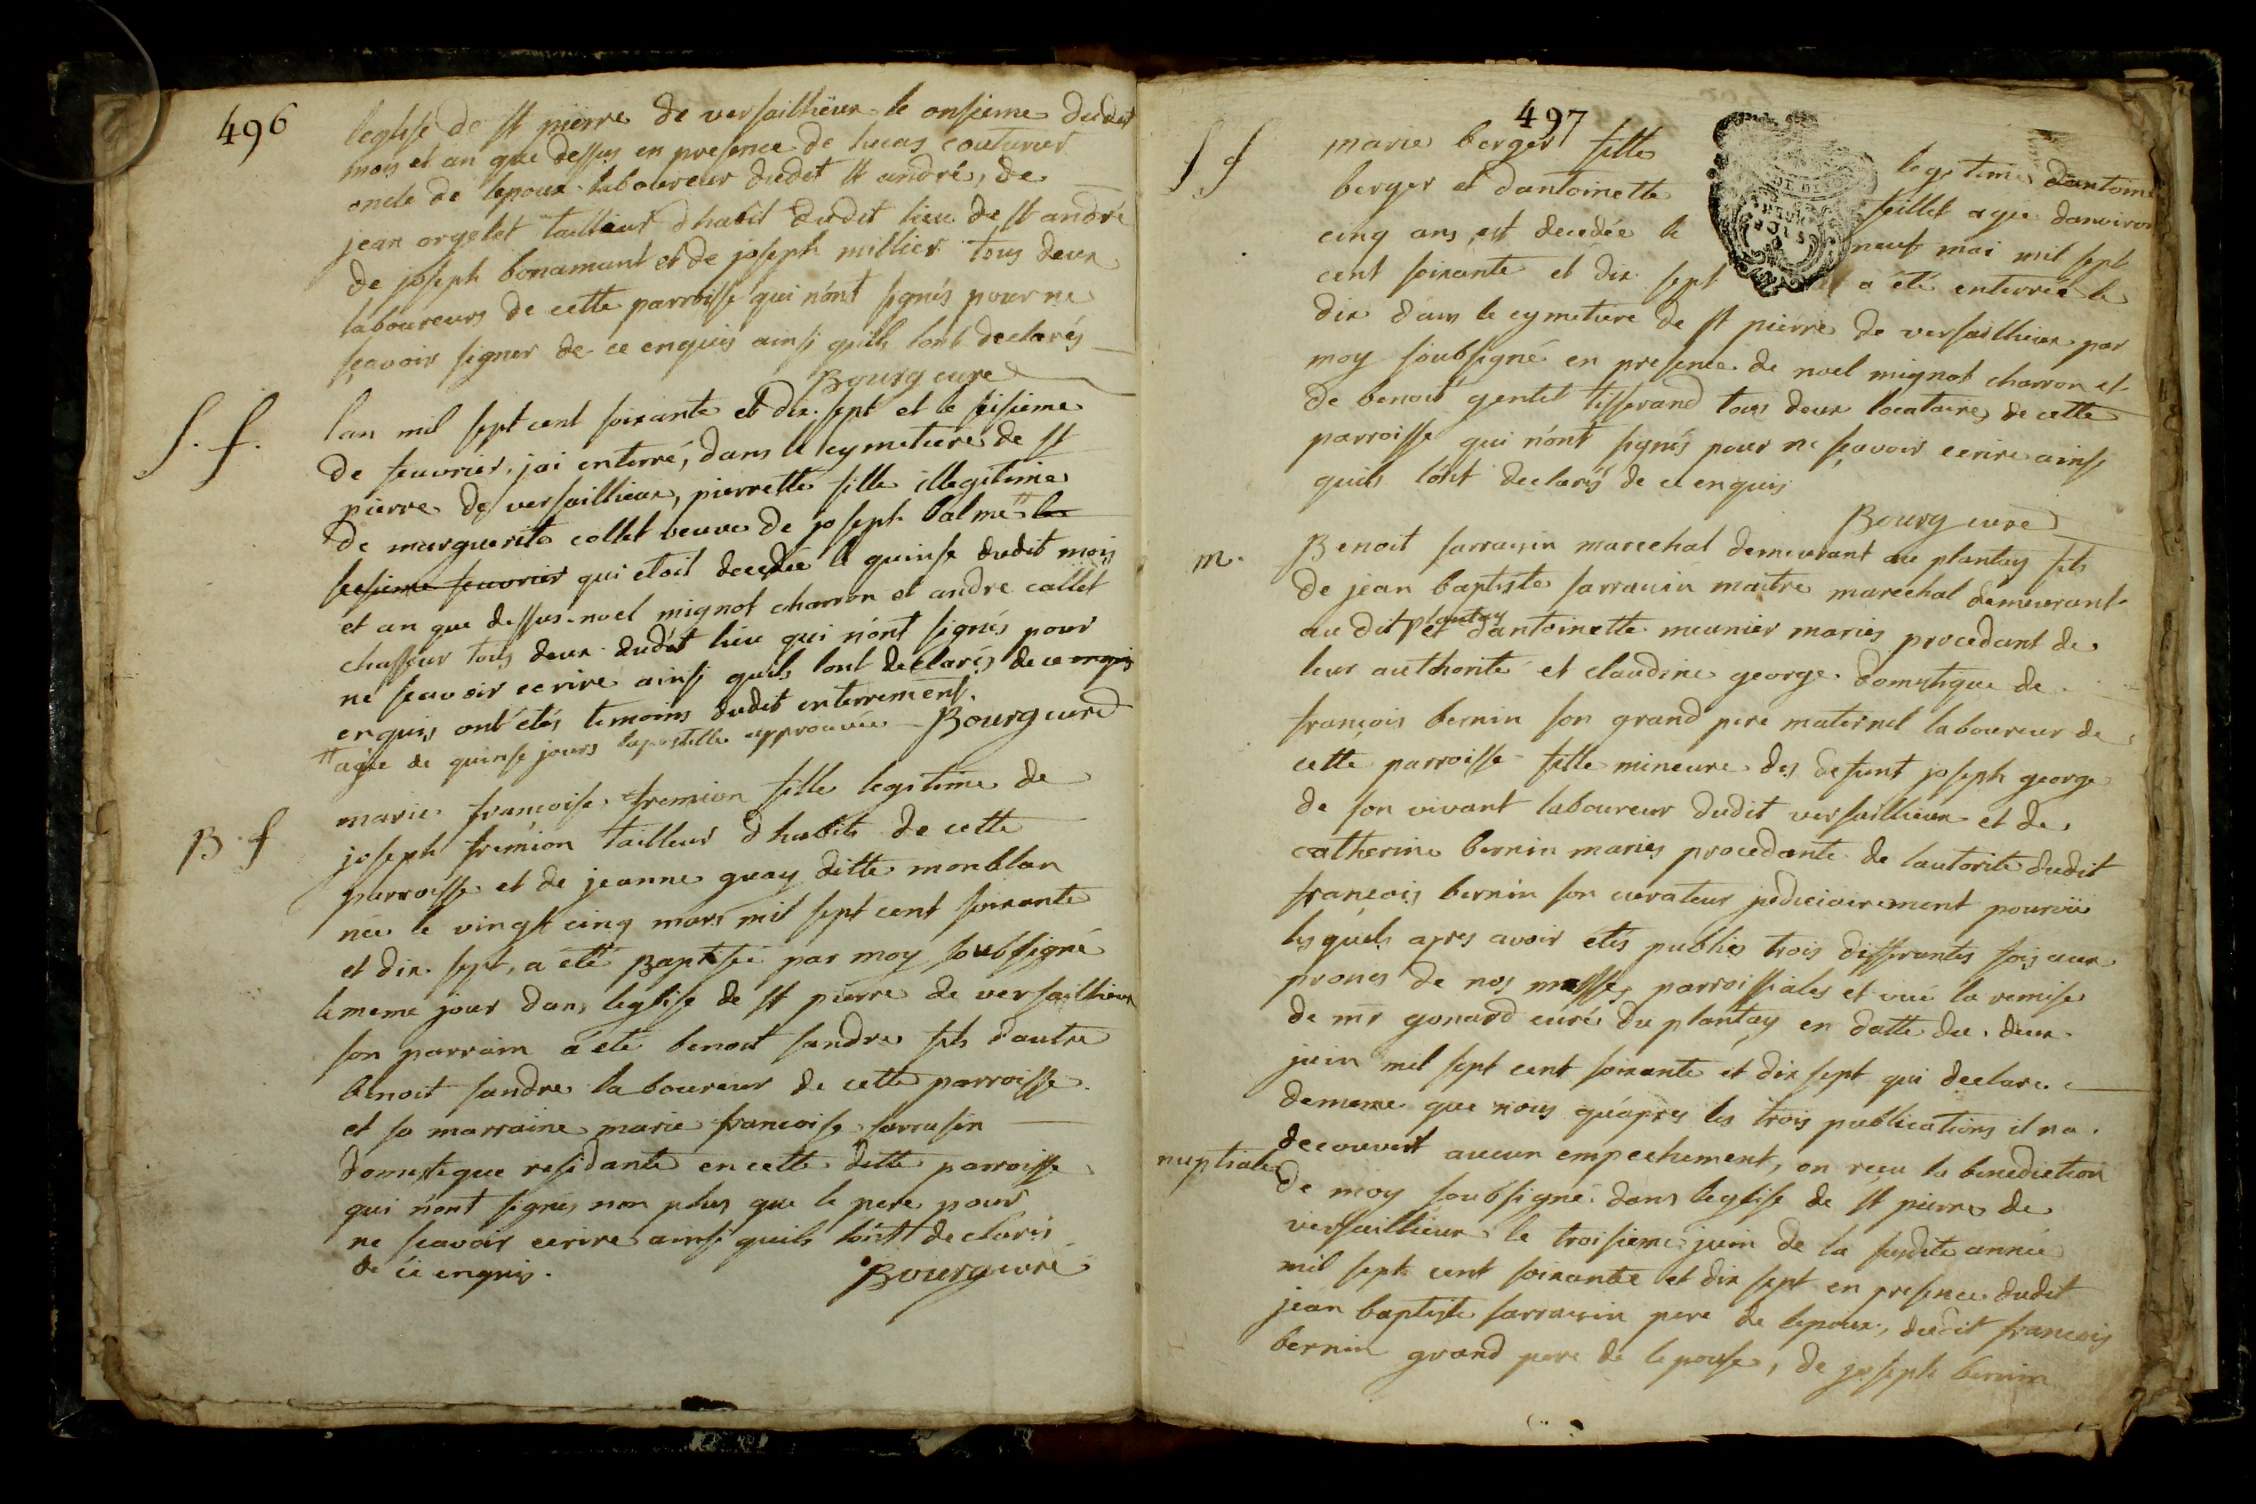 496
leglise de st pierre de versaillieux le onsieme dudit
mois et an que dessus en presence de lucas couturier
oncle de lepoux laboureur dudit st andré, de
jean orgelet tailleur dhabit dudit lieu de st andré
de joseph bonamant et de joseph millier tous deux
laboureurs de cette parroisse qui n'ont signés pour ne
sçavoir signer de ce enquis ainsi quils lont declarés
Bourg curé
S. f.
lan mil sept cent soixante et dix sept et le seisieme
de feuvrier, jai enterré, dans le cymetiere de st
pierre de versaillieux, pierrette fille illegitime
de marguerite collet veuve de joseph balme # le
seisieme feuvrier qui etoit decedée le quinse dudit mois
et an que dessus. noel mignot charron et andre callet
chasseur tous deux dudit lieu qui n'ont signés pour
ne scavoir ecrire ainsi quils lont declarés de ce
enquis ont étés temoins dudit enterrement.
# agée de quinse jours lapostille approuvée Bourg curé
B. f
marie françoise fremion fille legitime de
joseph fremion tailleur dhabits de cette
parroisse et de jeanne guay ditte monblan
née le vingt cinq mars mil sept cent soixante
et dix sept, a été Baptisée par moy soubsigné
le meme jour dans leglise de st pierre de versaillieux
son parrain a été benoit sandre fils d'autre
benoit sandre laboureur de cette parroisse
et sa marraine marie francoise sarrasin
domestique residante en cette ditte parroisse
qui n'ont signés non plus que le pere pour
ne scavoir ecrire ainsi quils l'ont declarés
de ce enquis.
Bourg curé
497
S f
marie berger fille legitime dantoine
berger et dantoinette feillet agée danviron
cinq ans, est decedée le neuf mai mil sept
cent soixante et dix sept a été enterrée le
dix dans le cymetiere de st pierre de versaillieux par
moy soubsigné en presence de noel mignot charron et
de benoit gentet tisserand tous deux locataires de cette
parroisse qui n'ont signés pour ne sçavoir ecrire ainsi
quils l'ont declarés de ce enquis
Bourg curé
m.
Benoit sarrasin marechal demeurant au plantay fils
de jean baptiste sarrasin maitre marechal demeurant
au dit plantay et dantoinette meunier mariés procedant de
leur authorité et claudine george domestique de
françois bernin son grand pere maternel laboureur de
cette parroisse fille mineure des defunt joseph george
de son vivant laboureur dudit versaillieux et de
catherine bernin mariés procedante de lautorité dudit
françois bernin son curateur judiciairement pourvû
lesquels apres avoir étés publiés trois differantes fois aux
prones de nos messes parroissiales et vuë la remise
de mr gonard curé du plantay en datte du deux
juin mil sept cent soixante et dix sept qui declare
dememe que nous qu'après les trois publications il na
decouvert aucun empechement, on reçu la benediction
nuptiale
de moy soubsigné dans leglise de st pierre de
versaillieux le troisieme juin de la susdite année
mil sept cent soixante et dix sept en presence dudit
jean baptiste sarrasin pere de lepoux, dudit francois
bernin grand pere de lepouse, de joseph bernin